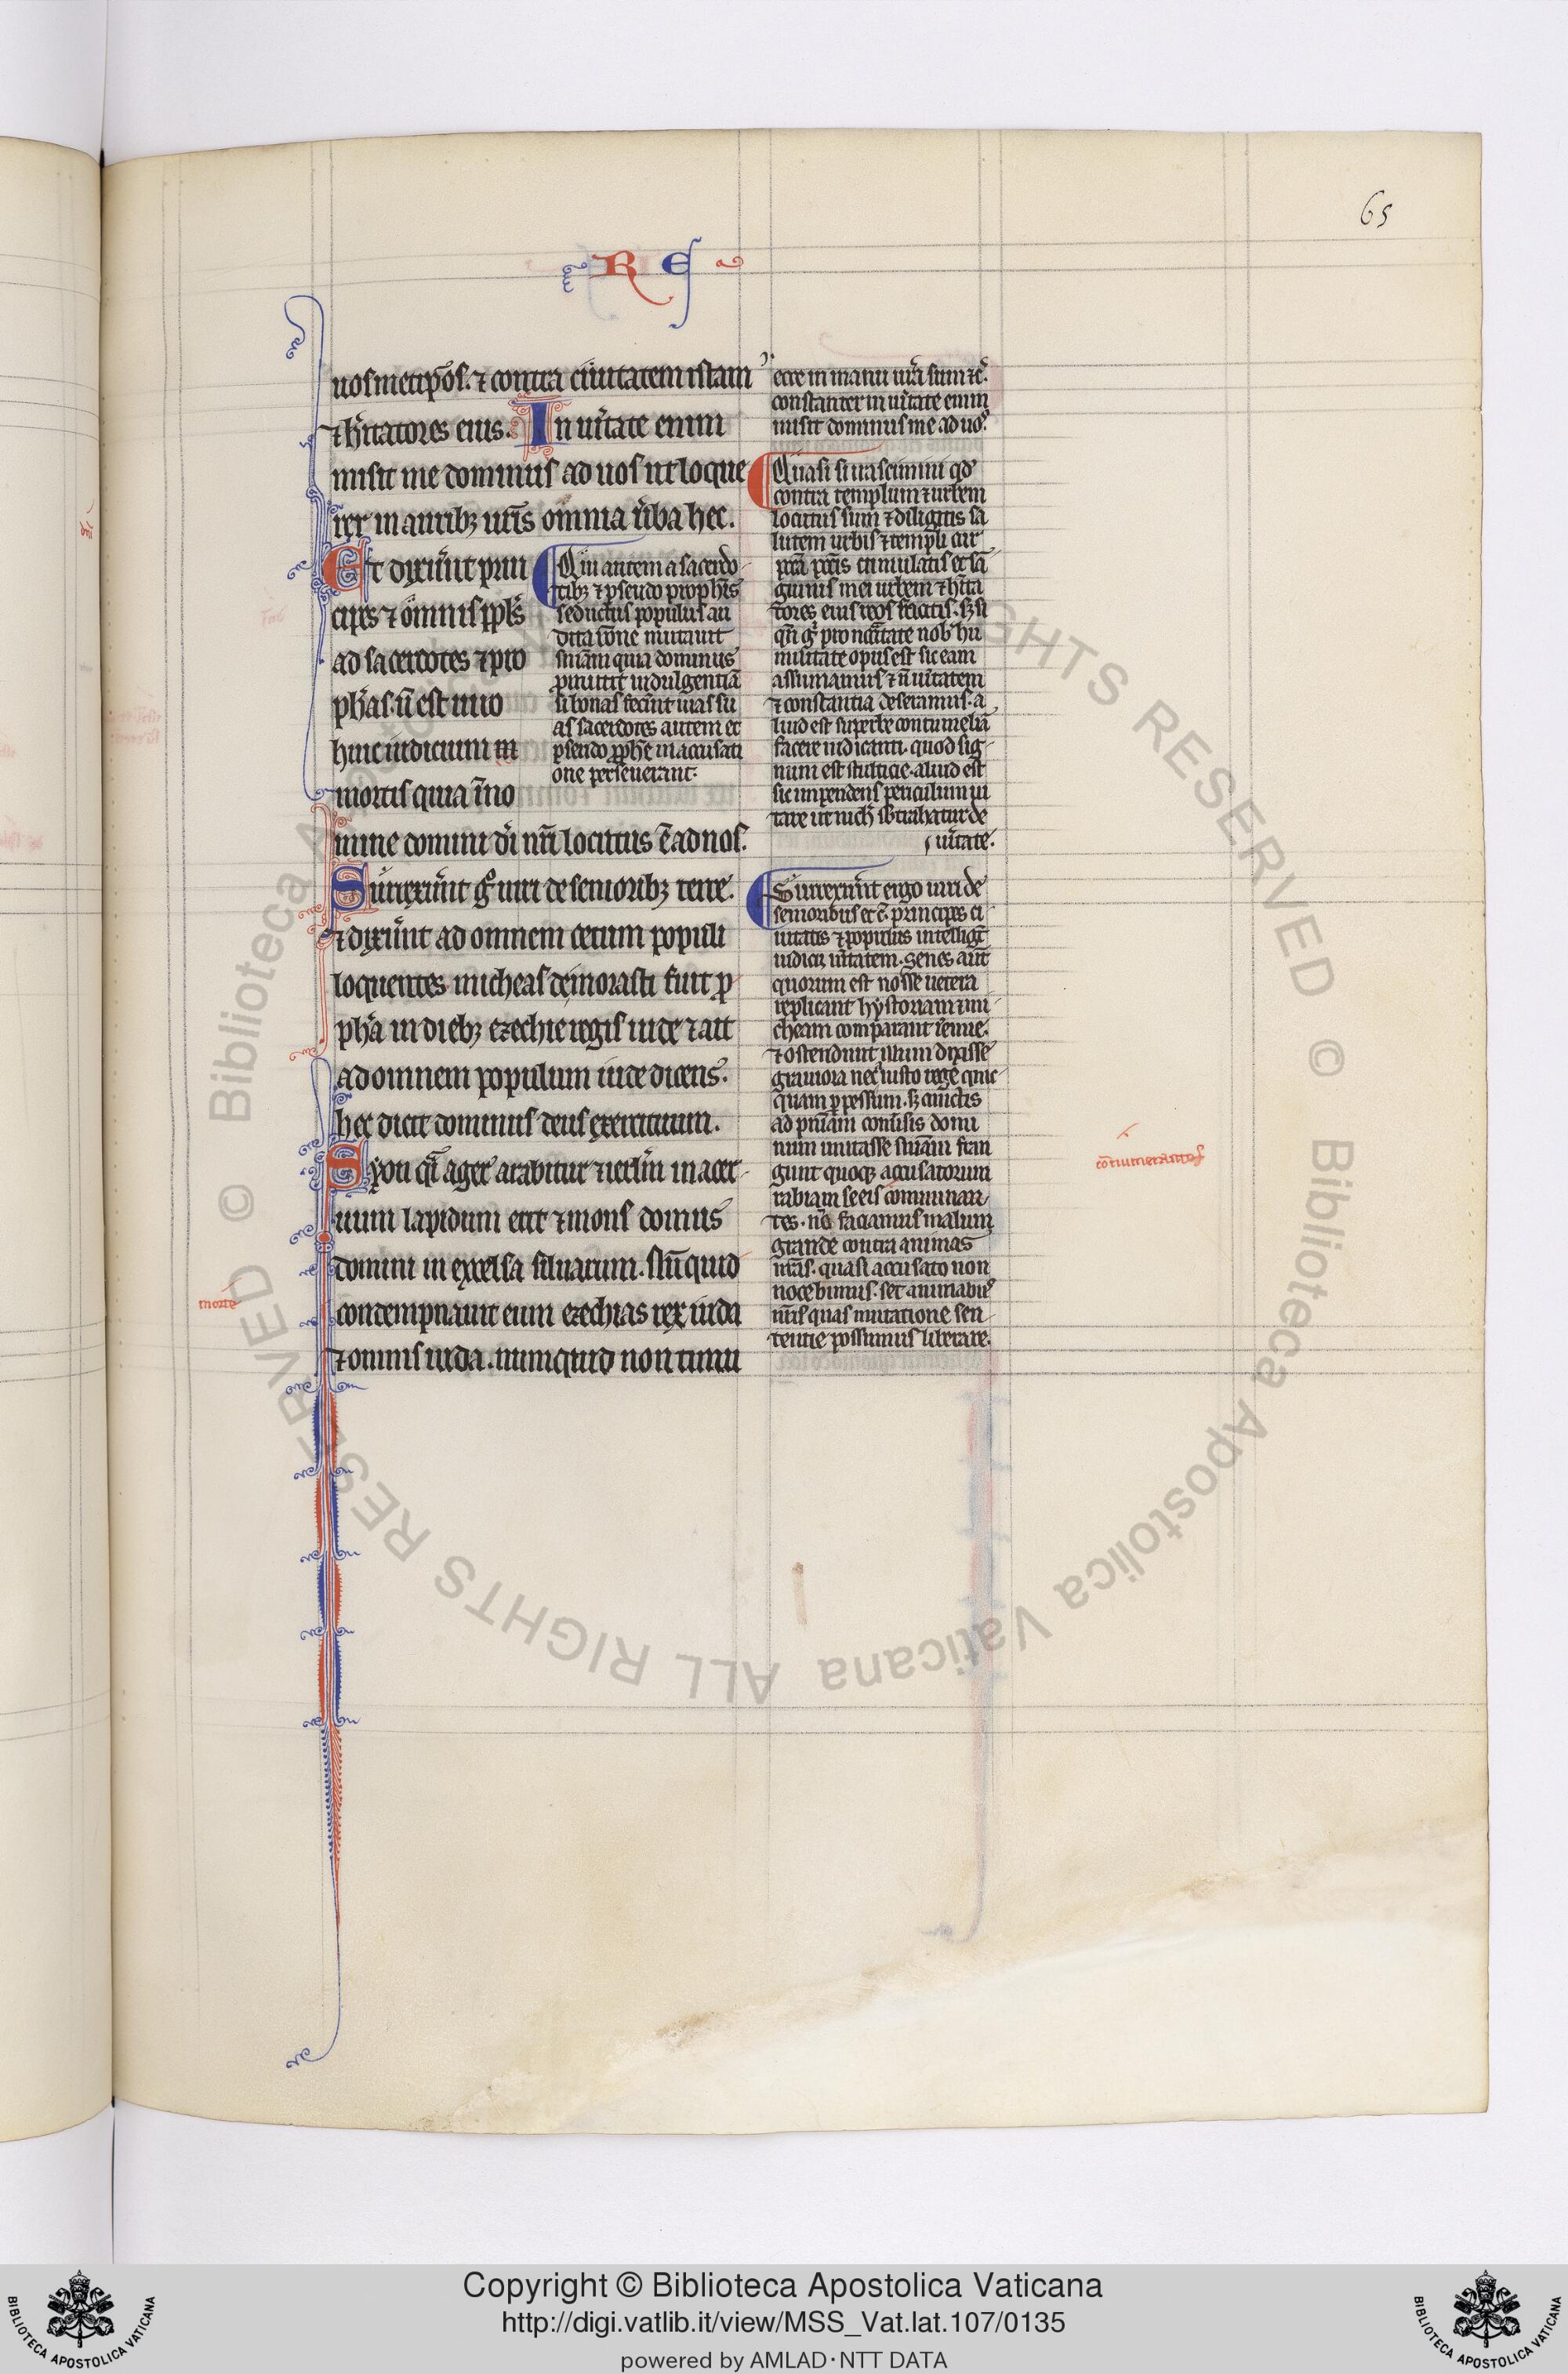 65
R E
uosmetip̄os. ⁊ contra ciuitatem istam
⁊ h̄itatores eius. In uītate enim
misit me dominus ad uos ut loque
rer in auribꝫ ur̄is omnia ūba hec.
Et dixer̄unt prin
cipes ⁊ omnis ppl̄s
ad sacerdotes ⁊ pro
ph̄as. n̄ est uiro
huic iudicium m
mortis quia ī no
mine domini dī nr̄i locutus ē ad nos.
Surrexer̄unt gͦ uiri de senioribꝫ terre.
⁊ dixer̄unt ad omnem cetum populi
loquentes. micheas de morasti fuit ꝓ
ph̄a in diebꝫ ezechie regis iude ⁊ ait
ad omnem populum iude dicens.
hec dicit dominus deus exercituum.
Syon qͣi ager arabitur ⁊ ierlm̄ in acer
uum lapidum erit ⁊ mons domus
domini in excelsa siluarum. Nūquid
contempnauit eum ezechias rex iuda
⁊ omnis iuda. numquid non timu
Qui autem a sacerdo
tibꝫ ⁊ pseudo proph̄is
seductus populus au
dita rōne mutauit
sn̄iam quia dominus
promittit indulgentiā
si bonas fecerīt uias su
as sacerdotes autem et
pseudo ꝓph̄e in accusati
one perseuerant.
ecce in manu ur̄a sum ⁊c̄.
constanter in uītate enim
misit dominus me ad uos.
Quasi si irascimini qd̓
contra templum ⁊ urbem
locutus sum ⁊ diligitis sa
lutem urbis ⁊ templi cur
pcc̄a pcc̄is cumulatis et sā
guinis mei urbem ⁊ h̄ita
tores eius reos facitis. sꝫ si
qn̄ gͦ pro nc̄citate nob̄ hu
militate opus est sic eam
assumamus ⁊ n̄ uītatem
⁊ constantia deseramus. a
liud est superbe contumeliā
facere iudicanti. quod sig
num est stulticie. aliud est
sic impendens periculum ui
tare ut nich̄ sb̓trahatur de
uītate.
Surrexer̄unt ergo uiri de
senioribus et c̄. principes ci
uitatis ⁊ populus intelligit
iudicꝫ uītatem. senes aut̄
quorum est nosse uetera
replicant hystoriam ⁊ mi
cheam comparant ieremie.
⁊ ostendunt illum dixisse
grauiora nec iusto rege quic
quam ꝑpessum. sꝫ cunctis
ad pn̄iam conūsis domi
num mutasse sn̄iam fran
gunt quoqꝫ accusatorum
rabiam se eis cōmuinan
tes. nō faciamus malum
grande contra animas
nr̄as. quasi accusato non
nocebimus. set animabus
nr̄is quas mutatione sen
tentie possumus liberare.
morte
cōnumerantes
Copyright © Biblioteca Apostolica Vaticana
http://digi.vatlib.it/view/MSS_Vat.lat.107/0135
powered by AMLAD·NTT DATA
© Biblioteca Apostolica Vaticana ALL RIGHTS RESERVED
BIBLIOTECA APOSTOLICA VATICANA
BIBLIOTECA APOSTOLICA VATICANA